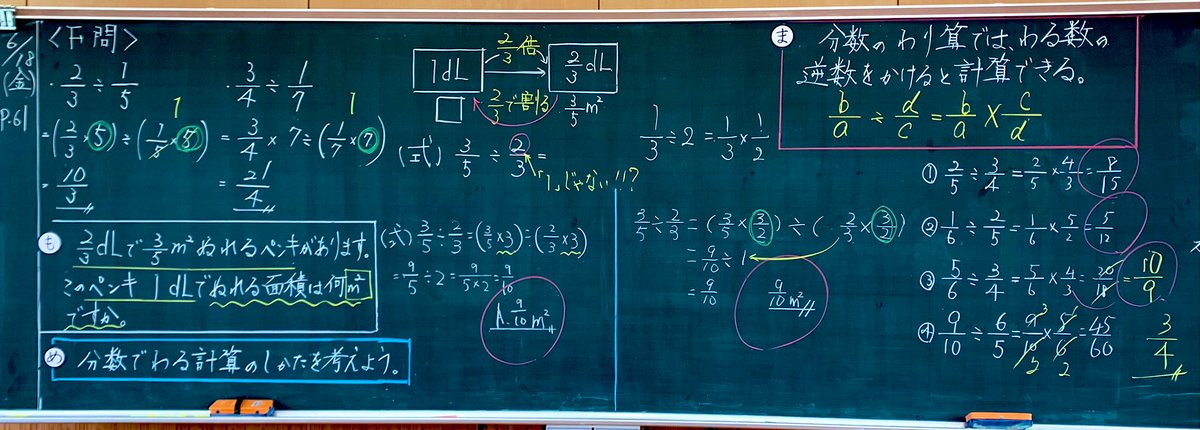 6/18
(金)
P.61
<F問>
・2/3÷1/5
1
=(2/3×5)÷(1/5×5)
=10/3
・3/4÷1/7
1
=3/4×7÷(1/7×7)
=21/4
も 2/3dLで3/5m²ぬれるペンキがあります。
このペンキ1dLでぬれる面積は何m²
ですか。
め 分数でわる計算のしかたを考えよう。
1dL
2/3倍
2/3dL
2/3で割る
□
3/5m²
(式) 3/5÷2/3=
「1」じゃない!!?
(式) 3/5÷2/3=(3/5×3)=(2/3×3)
=9/5÷2=9/5×2=9/10
A.9/10m²
1/3÷2=1/3×1/2
3/5÷2/3=(3/5×3/2)÷(2/3×3/2)
=9/10÷1
=9/10
9/10m²
ま 分数のわり算では、わる数の
逆数をかけると計算できる。
b/a÷d/c=b/a×c/d
① 2/5÷3/4=2/5×4/3=8/15
② 1/6÷2/5=1/6×5/2=5/12
③ 5/6÷3/4=5/6×4/3=20/18=10/9
④ 9/10÷6/5=9/10×5/6=45/60
3 1
2 2
3/4